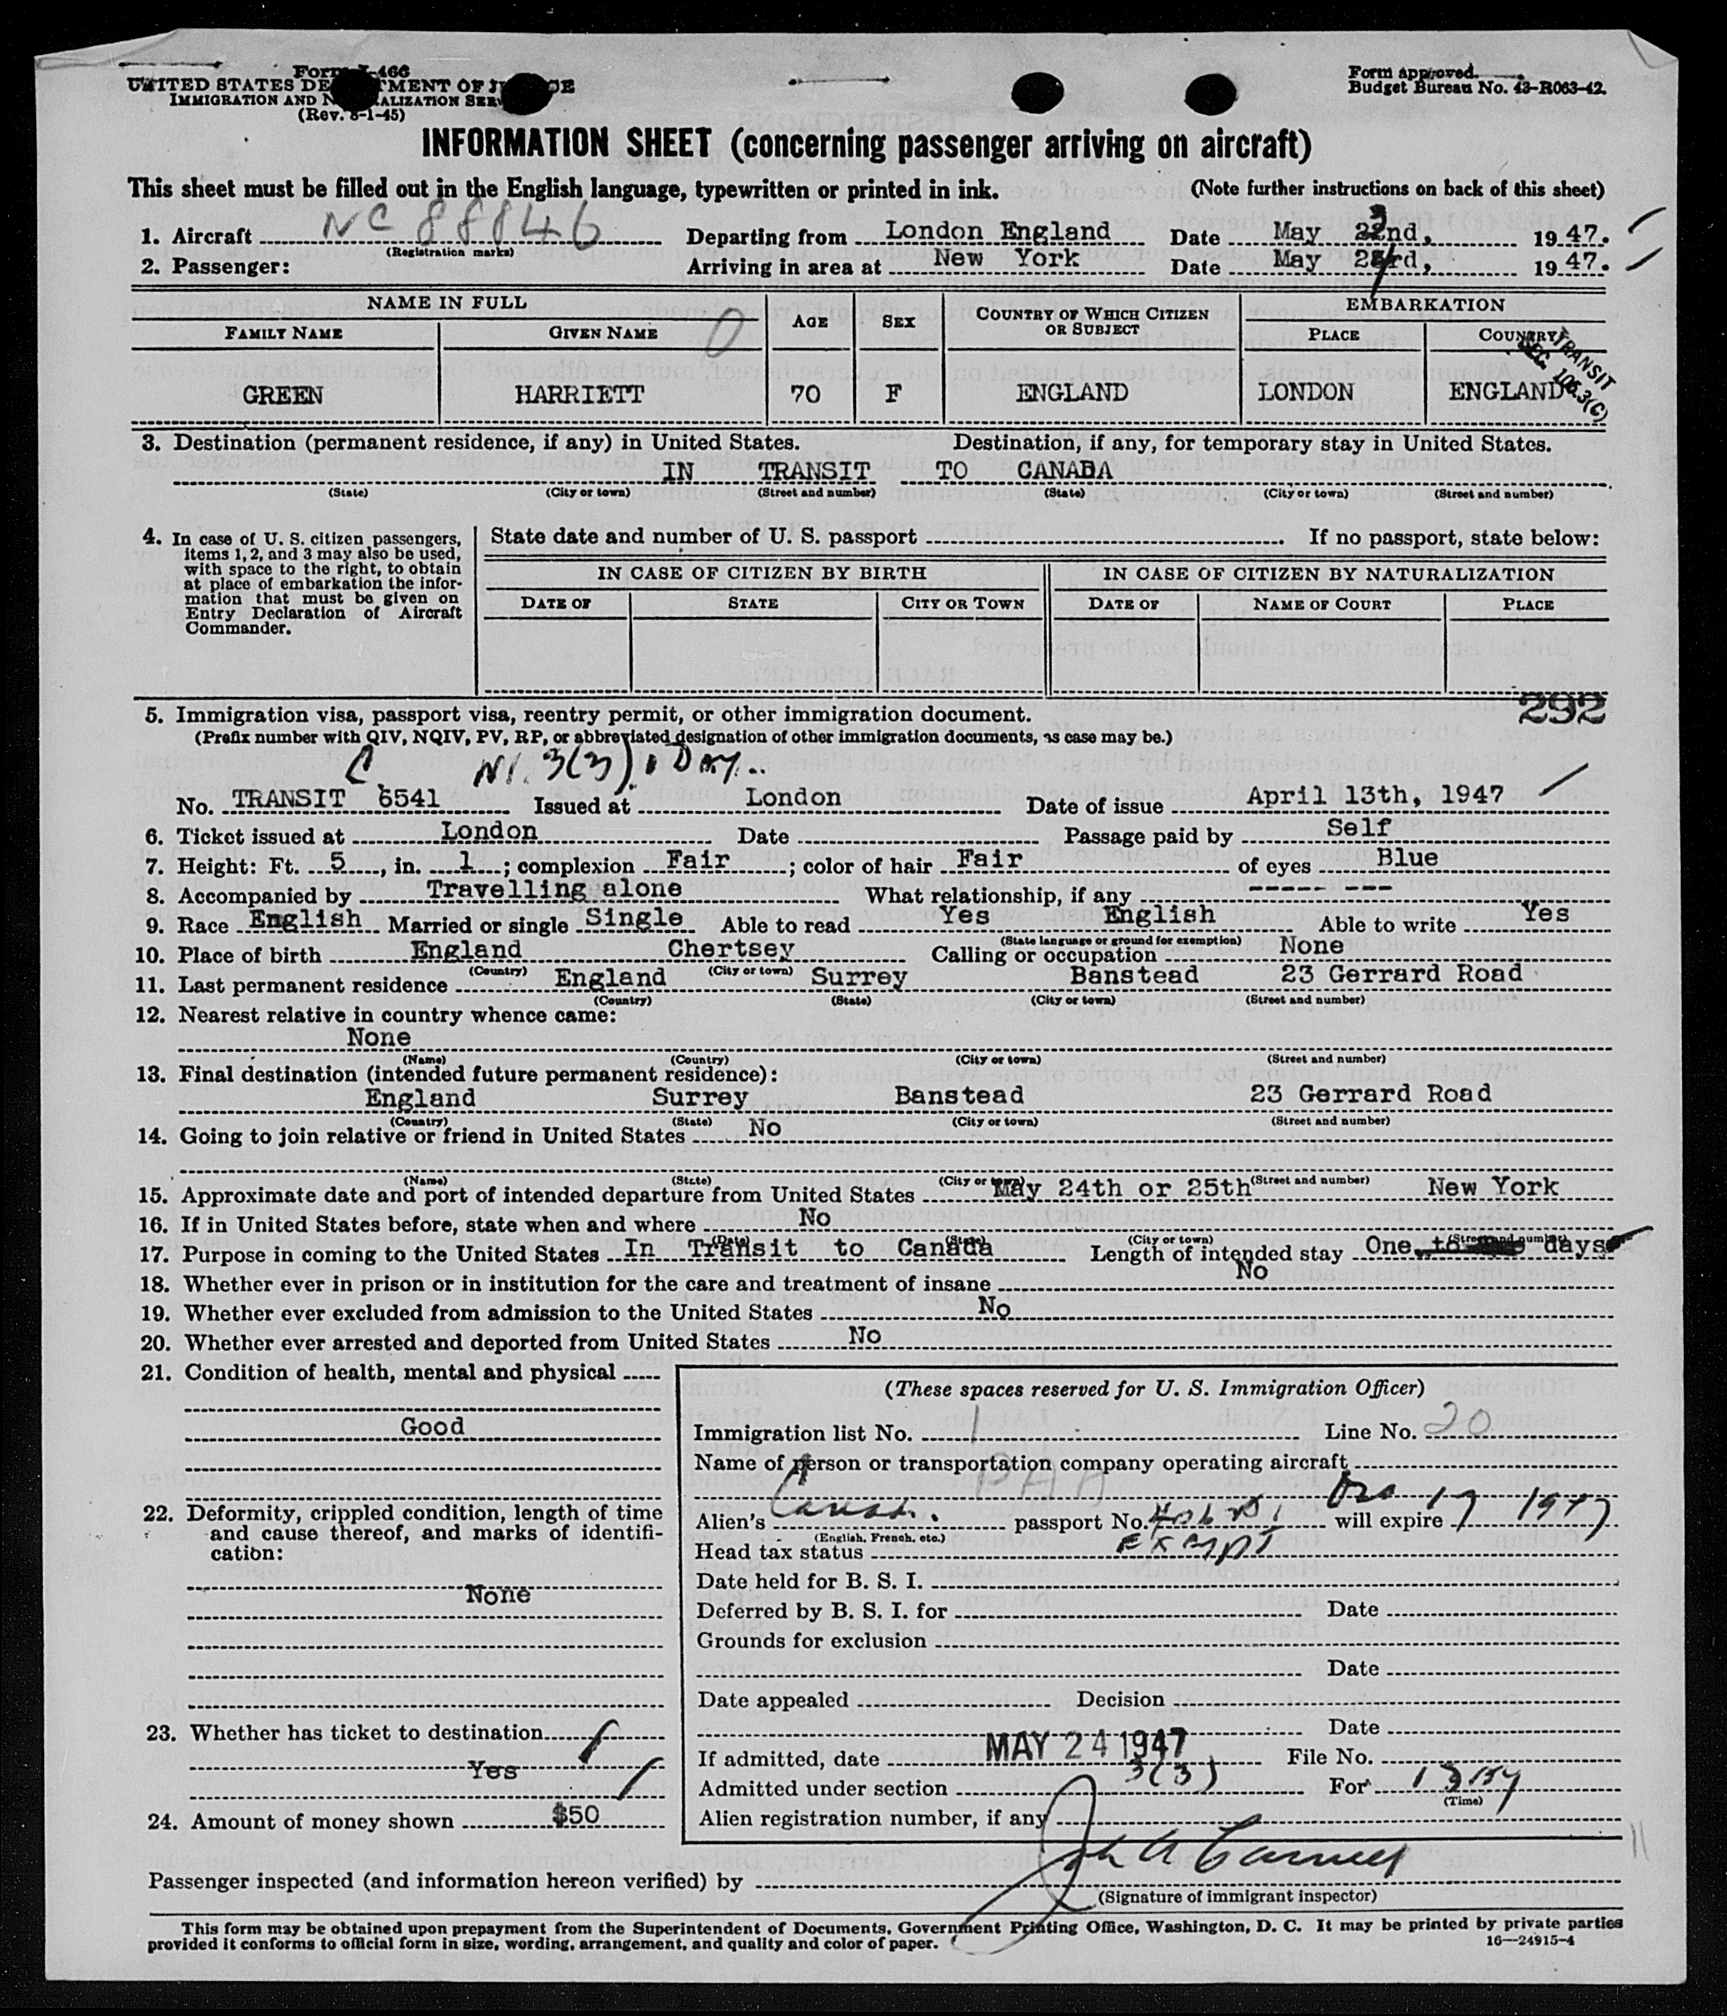 Form I-466
UNITED STATES DEPARTMENT OF JUSTICE
IMMIGRATION AND NATURALIZATION SERVICE
(Rev. 8-1-45)
Form approved.
Budget Bureau No. 43-R063-42.
INFORMATION SHEET (concerning passenger arriving on aircraft)
This sheet must be filled out in the English language, typewritten or printed in ink. (Note further instructions on back of this sheet)
1. Aircraft NC 88846 Departing from London England Date May 22nd, 3 1947.
(Registration marks)
2. Passenger: Arriving in area at New York Date May 23rd, 4 1947.
NAME IN FULL AGE SEX COUNTRY OF WHICH CITIZEN OR SUBJECT EMBARKATION
FAMILY NAME GIVEN NAME 0 PLACE COUNTRY
TRANSIT
SEC. 105.3(C)
GREEN HARRIETT 70 F ENGLAND LONDON ENGLAND
3. Destination (permanent residence, if any) in United States. Destination, if any, for temporary stay in United States.
IN TRANSIT TO CANADA
(State) (City or town) (Street and number) (State) (City or town) (Street and number)
4. In case of U. S. citizen passengers,
items 1, 2, and 3 may also be used,
with space to the right, to obtain
at place of embarkation the infor-
mation that must be given on
Entry Declaration of Aircraft
Commander.
State date and number of U. S. passport If no passport, state below:
IN CASE OF CITIZEN BY BIRTH IN CASE OF CITIZEN BY NATURALIZATION
DATE OF STATE CITY OR TOWN DATE OF NAME OF COURT PLACE
292
5. Immigration visa, passport visa, reentry permit, or other immigration document.
(Prefix number with QIV, NQIV, PV, RP, or abbreviated designation of other immigration documents, as case may be.)
C. 3(3) 1 Day
No. TRANSIT 6541 Issued at London Date of issue April 13th, 1947
6. Ticket issued at London Date Passage paid by Self
7. Height: Ft. 5, in. 1; complexion Fair; color of hair Fair of eyes Blue
8. Accompanied by Travelling alone What relationship, if any ----- ---
9. Race English Married or single Single Able to read Yes English Able to write Yes
(State language or ground for exemption)
10. Place of birth England Chertsey Calling or occupation None
(Country) (City or town)
11. Last permanent residence England Surrey Banstead 23 Gerrard Road
(Country) (State) (City or town) (Street and number)
12. Nearest relative in country whence came:
None
(Name) (Country) (City or town) (Street and number)
13. Final destination (intended future permanent residence):
England Surrey Banstead 23 Gerrard Road
(Country) (State) (City or town) (Street and number)
14. Going to join relative or friend in United States No
(Name) (State) (City or town) (Street and number)
15. Approximate date and port of intended departure from United States May 24th or 25th New York
16. If in United States before, state when and where No
(Date) (State) (City or town) (Street and number)
17. Purpose in coming to the United States In Transit to Canada Length of intended stay One to days
18. Whether ever in prison or in institution for the care and treatment of insane No
19. Whether ever excluded from admission to the United States No
20. Whether ever arrested and deported from United States No
21. Condition of health, mental and physical
Good
22. Deformity, crippled condition, length of time
and cause thereof, and marks of identifi-
cation:
None
23. Whether has ticket to destination
Yes
24. Amount of money shown $50
(These spaces reserved for U. S. Immigration Officer)
Immigration list No. 1 Line No. 20
Name of person or transportation company operating aircraft
PAA
Alien's passport No. will expire 1947
(English, French, etc.)
Head tax status EXEMPT
Date held for B. S. I.
Deferred by B. S. I. for Date
Grounds for exclusion
Date
Date appealed Decision
Date
If admitted, date MAY 24 1947 File No.
Admitted under section 3(3) For 1 Day
(Time)
Alien registration number, if any
Passenger inspected (and information hereon verified) by
(Signature of immigrant inspector)
11
This form may be obtained upon prepayment from the Superintendent of Documents, Government Printing Office, Washington, D. C. It may be printed by private parties
provided it conforms to official form in size, wording, arrangement, and quality and color of paper. 16—24915-4